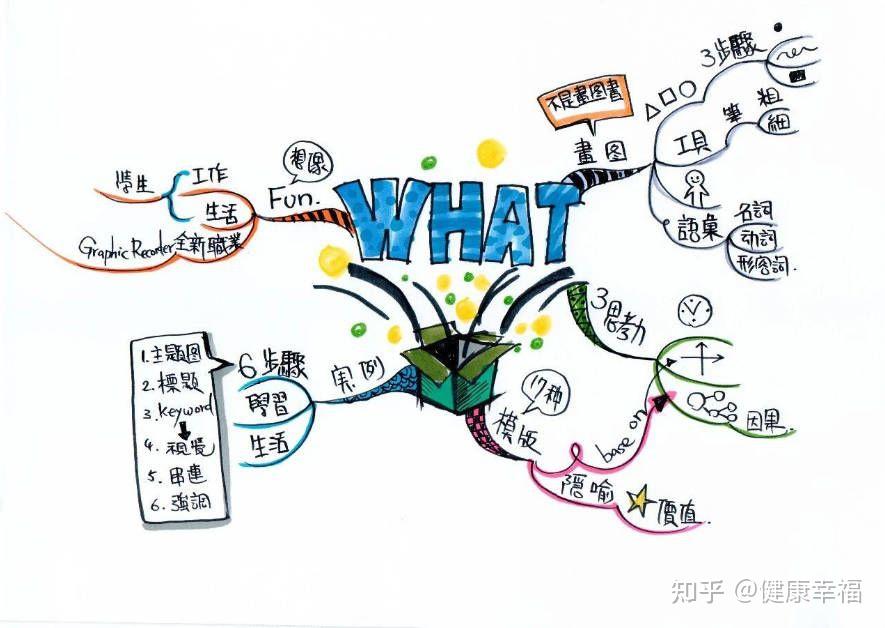 WHAT
不是畫图畫
畫图
3步驟
工具
筆
粗
細
語彙
名詞
动詞
形容詞.
想像
Fun.
工作
學生
生活
全新職業
Graphic Recorder
实例
6步驟
學習
生活
1.主題图
2.標題
3.keyword
4.視覺
5.串連
6.強調
17种
模版
base on
隱喻
價值.
3思考力
因果.
知乎 @健康幸福